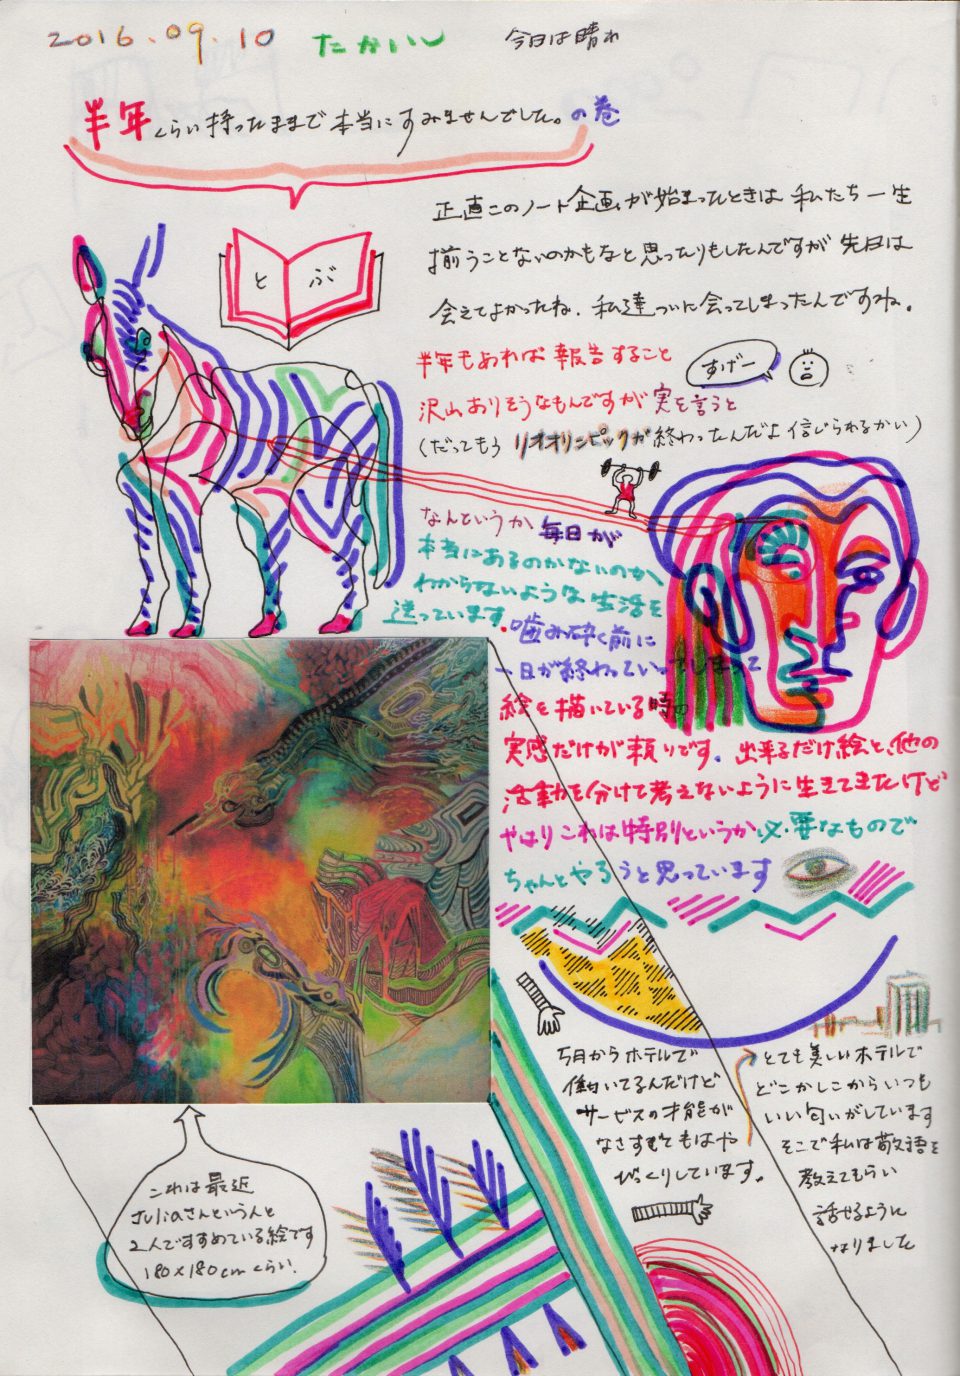 2016.09.10 たかいし 今日は晴れ
半年くらい持ったままで本当にすみませんでした。の巻
正直このノート企画が始まったときは 私たち一生
揃うことないのかもなと思ったりもしたんですが 先日は
会えてよかったね。私達ついに会ってしまったんですね。
とぶ
半年もあれば報告すること
すげー
沢山ありそうなもんですが実を言うと
(だってもうリオオリンピックが終わったんだよ信じられるかい)
なんというか毎日が
本当にあるのかないのか
わからないような生活を
送っています。噛み砕く前に
一日が終わっていってしまって
絵を描いている時の
実感だけが頼りです。出来るだけ絵と、他の
活動を分けて考えないように生きてきたけど
やはりこれは特別というか必要なもので
ちゃんとやろうと思っています
5月からホテルで
働いてるんだけど
サービスの才能が
なさすぎてもはや
びっくりしています。
とても美しいホテルで
どこかしこからいつも
いい匂いがしています
そこで私は敬語を
教えてもらい
話せるように
なりました
これは最近
Juliaさんという人と
2人ですすめている絵です
180×180cmくらい。